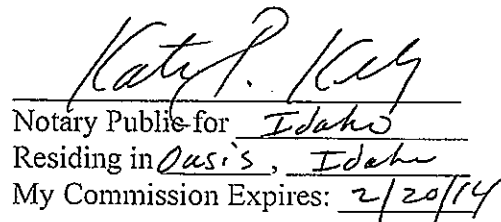 Katy P. Kely
Notary Public for Idaho
Residing in Oasis, Idaho
My Commission Expires: 2/20/14